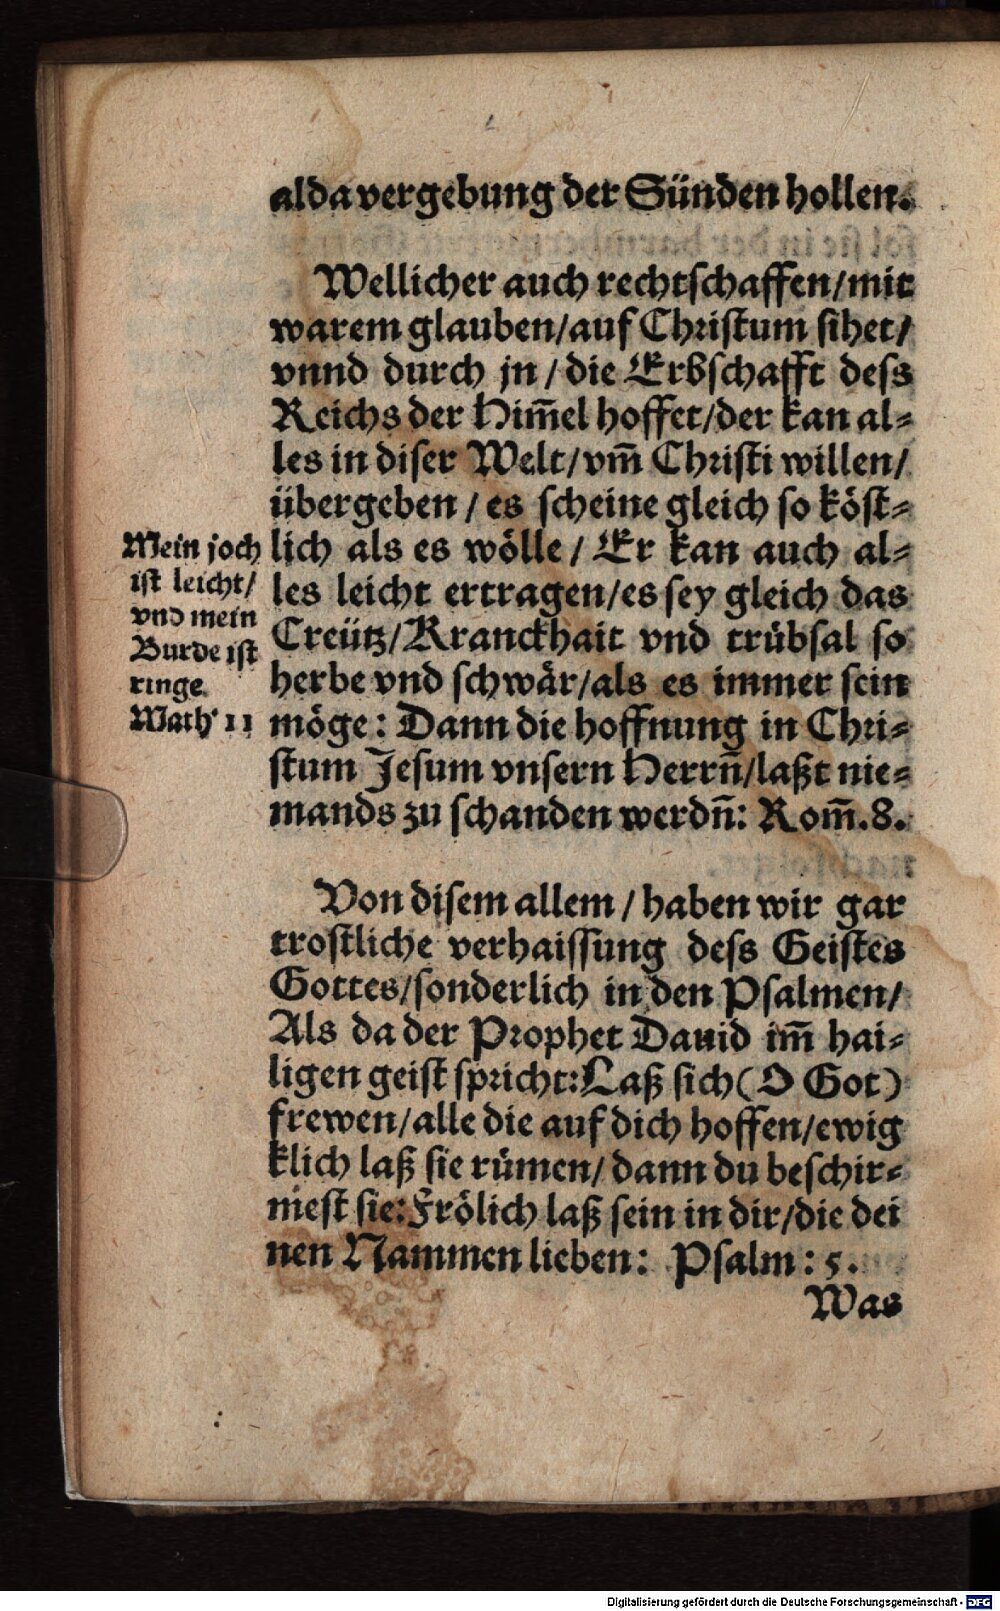 alda vergebung der Sünden hollen.
Wellicher auch rechtschaffen/mit
warem glauben/auf Christum sihet/
vnnd durch jn/die Erbschafft dess
Reichs der Him̄el hoffet/der kan al⸗
les in diser Welt/vm̄ Christi willen/
übergeben/es scheine gleich so köst⸗
lich als es wölle/Er kan auch al⸗
les leicht ertragen/es sey gleich das
Creütz/Kranckhait vnd trübsal so
herbe vnd schwär/als es immer sein
möge: Dann die hoffnung in Chri⸗
stum Jesum vnsern Herrn̄/laßt nie⸗
mands zu schanden werdn̄: Rom̄.8.
Mein joch
ist leicht/
vnd mein
Burde ist
ringe
Math' 11
Von disem allem/haben wir gar
trostliche verhaissung dess Geistes
Gottes/sonderlich in den Psalmen/
Als da der Prophet Dauid im̄ hai⸗
ligen geist spricht: Laß sich (O Got)
frewen/alle die auf dich hoffen/ewig
klich laß sie rümen/dann du beschir⸗
mest sie: Frölich laß sein in dir/die dei
nen Nammen lieben: Psalm: 5.
Was
Digitalisierung gefördert durch die Deutsche Forschungsgemeinschaft - DFG